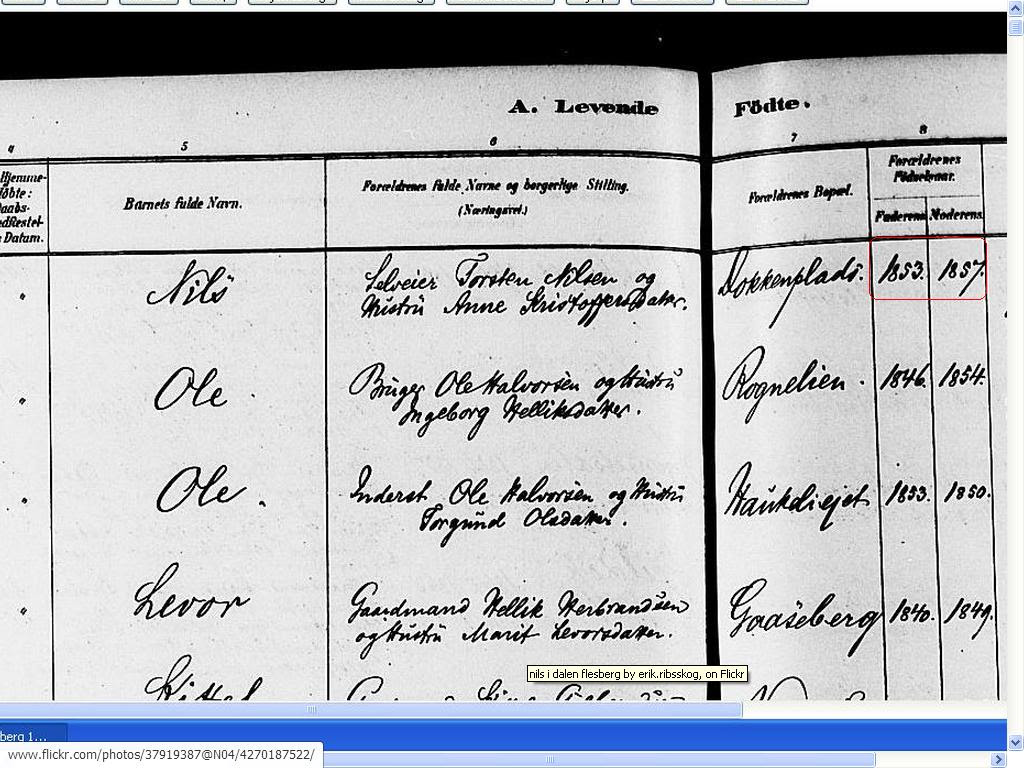 A. Levende Födte.
4 5 6 7 8
Hjemme-
døbte:
Daabs-
Datum.
Barnets fulde Navn.
Forældrenes fulde Navne og borgerlige Stilling.
(Næringsvei.)
Forældrenes Bopæl.
Forældrenes
Fødselsaar.
Faderens Moderens
" Nils Selveier Torsten Nilsen og
Hustrü Anne Kristoffersdatter.
Dokkenplads. 1853. 1857.
" Ole Brüger Ole Halvorsen og Hüstrü
Ingeborg Helliksdatter.
Rognelien. 1846. 1854.
" Ole. Inderst Ole Halvorsen og Hüstrü
Torgünd Olsdatter.
Haukdiejet 1853. 1850.
" Levor Gaardmand Hellik Herbrandsen
og Hüstrü Marit Levorsdatter.
Gaaseberg 1840. 1849.
Kittel
nils i dalen flesberg by erik.ribsskog, on Flickr
berg 1...
www.flickr.com/photos/37919387@N04/4270187522/